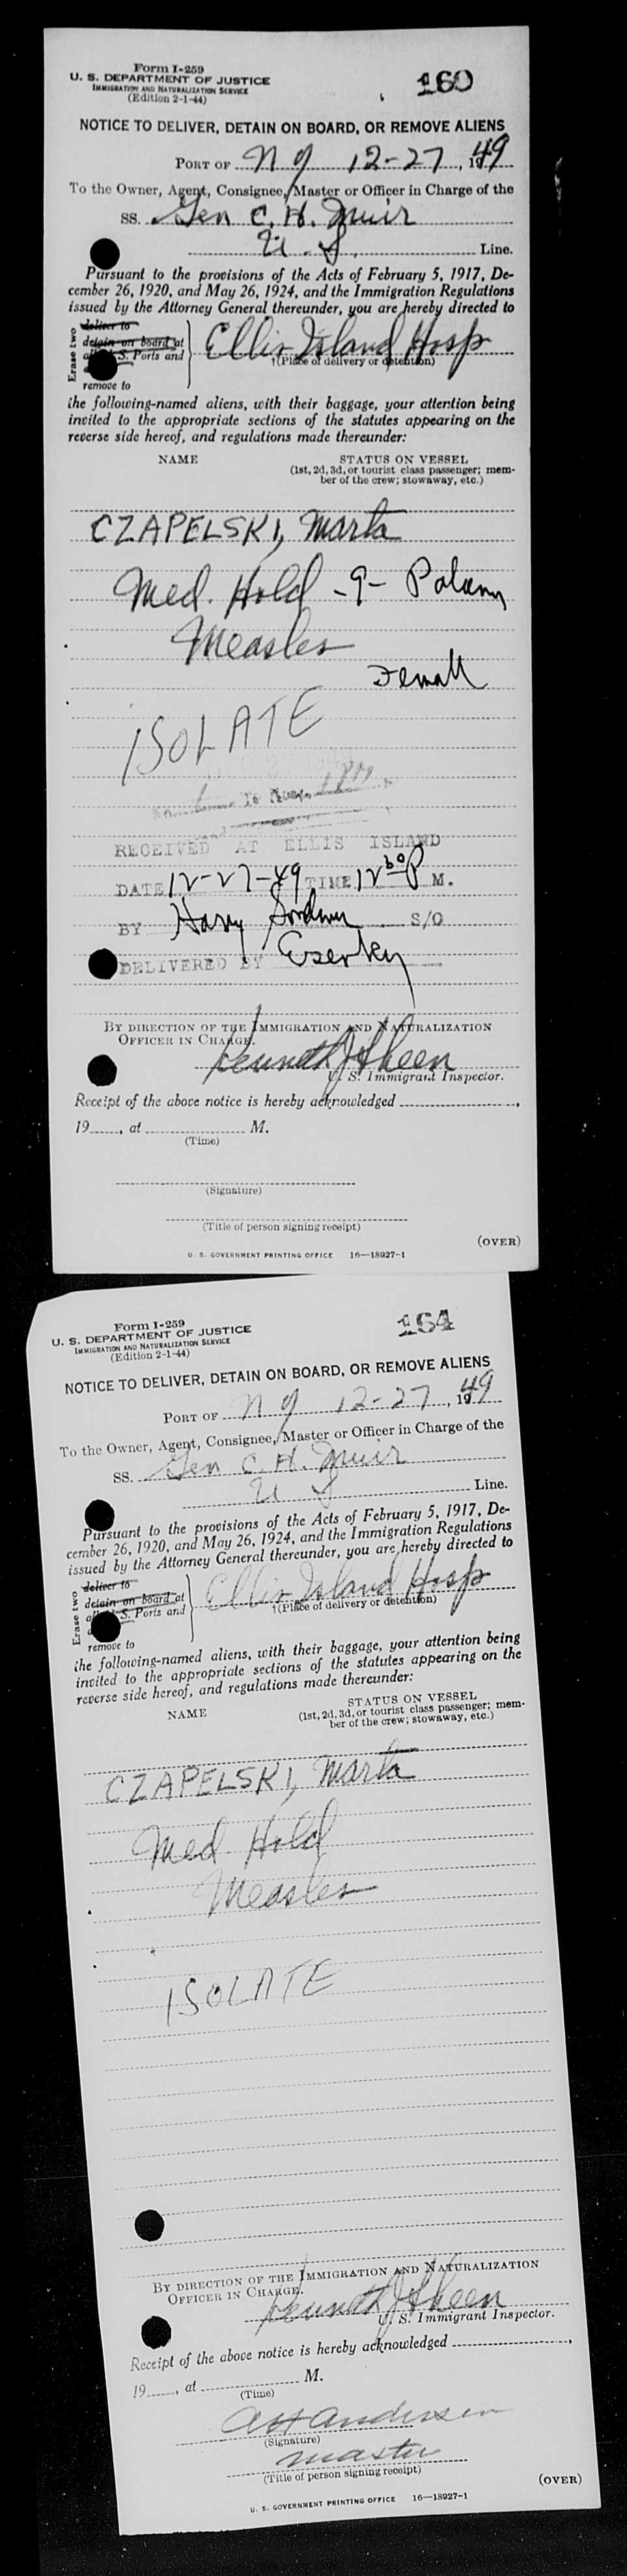 Form I-259
U. S. DEPARTMENT OF JUSTICE
IMMIGRATION AND NATURALIZATION SERVICE
(Edition 2-1-44)
160
NOTICE TO DELIVER, DETAIN ON BOARD, OR REMOVE ALIENS
PORT OF N Y 12-27, 1949
To the Owner, Agent, Consignee, Master or Officer in Charge of the
SS. Gen C. H. Muir
U. S. Line.
Pursuant to the provisions of the Acts of February 5, 1917, De-
cember 26, 1920, and May 26, 1924, and the Immigration Regulations
issued by the Attorney General thereunder, you are hereby directed to
Erase two
deliver to
detain on board at
S. Ports and
remove to
Ellis Island Hosp
†(Place of delivery or detention)
the following-named aliens, with their baggage, your attention being
invited to the appropriate sections of the statutes appearing on the
reverse side hereof, and regulations made thereunder:
NAME STATUS ON VESSEL
(1st, 2d, 3d, or tourist class passenger; mem-
ber of the crew; stowaway, etc.)
CZAPELSKI, Marta
Med. Hold -9-
Measles
Female
ISOLATE
RECEIVED AT ELLIS ISLAND
DATE 12-27-49 TIME 12 30 P M.
BY Harry S/O
DELIVERED BY
BY DIRECTION OF THE IMMIGRATION AND NATURALIZATION
OFFICER IN CHARGE.
Kenneth J Sheen
U. S. Immigrant Inspector.
Receipt of the above notice is hereby acknowledged
19, at M.
(Time)
(Signature)
(Title of person signing receipt)
(OVER)
U. S. GOVERNMENT PRINTING OFFICE 16—18927-1
Form I-259
U. S. DEPARTMENT OF JUSTICE
IMMIGRATION AND NATURALIZATION SERVICE
(Edition 2-1-44)
164
NOTICE TO DELIVER, DETAIN ON BOARD, OR REMOVE ALIENS
PORT OF N Y 12-27, 1949
To the Owner, Agent, Consignee, Master or Officer in Charge of the
SS. Gen C. H. Muir
U S Line.
Pursuant to the provisions of the Acts of February 5, 1917, De-
cember 26, 1920, and May 26, 1924, and the Immigration Regulations
issued by the Attorney General thereunder, you are hereby directed to
Erase two
deliver to
detain on board at
S. Ports and
remove to
Ellis Island Hosp
†(Place of delivery or detention)
the following-named aliens, with their baggage, your attention being
invited to the appropriate sections of the statutes appearing on the
reverse side hereof, and regulations made thereunder:
NAME STATUS ON VESSEL
(1st, 2d, 3d, or tourist class passenger; mem-
ber of the crew; stowaway, etc.)
CZAPELSKI, Marta
Med. Hold
Measles
ISOLATE
BY DIRECTION OF THE IMMIGRATION AND NATURALIZATION
OFFICER IN CHARGE.
Kenneth J Sheen
U. S. Immigrant Inspector.
Receipt of the above notice is hereby acknowledged
19, at M.
(Time)
A H Andersen
(Signature)
Master
(Title of person signing receipt)
(OVER)
U. S. GOVERNMENT PRINTING OFFICE 16—18927-1